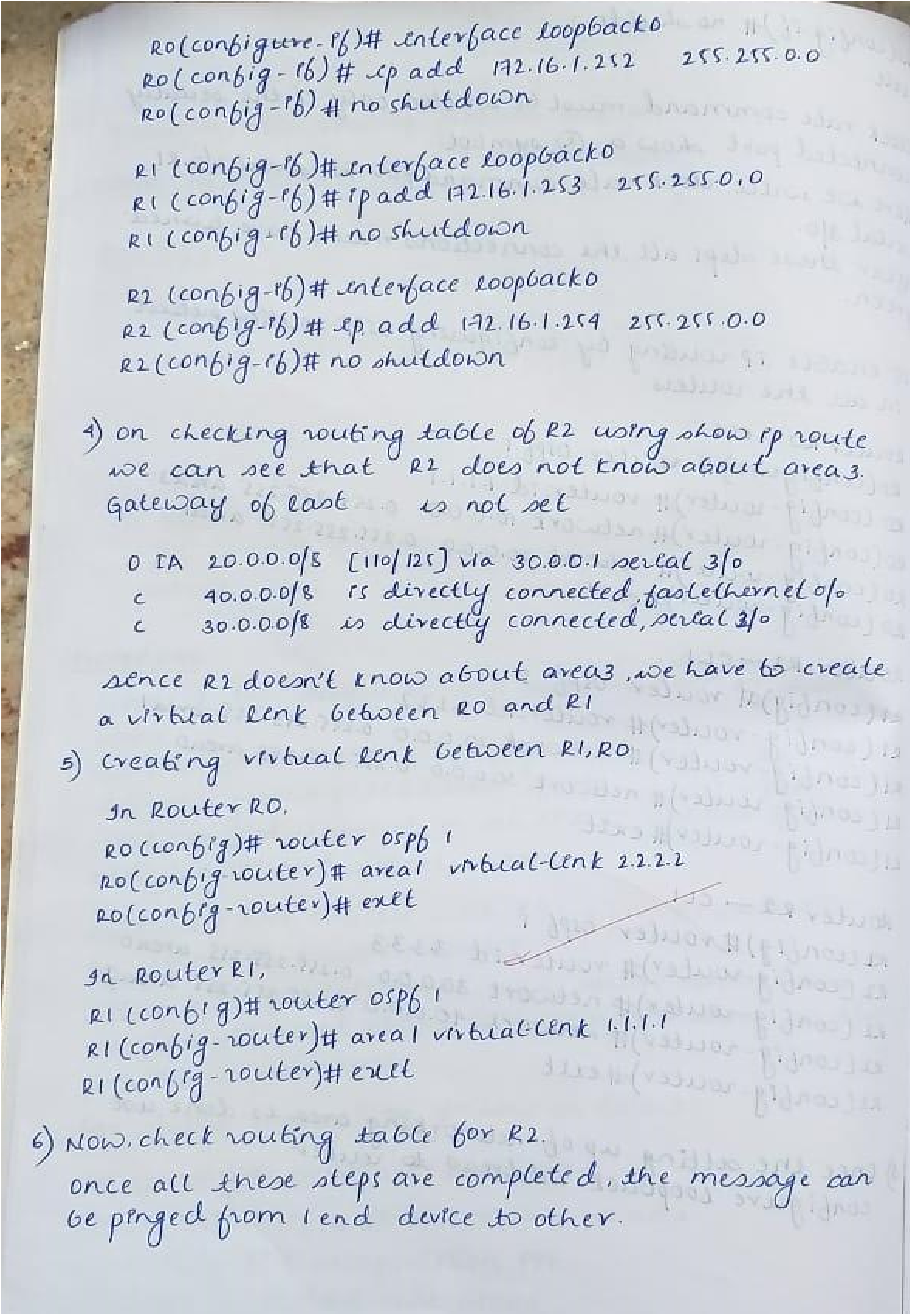 R0(configure-if)# interface loopback0
R0(config-if)# ip add 172.16.1.252 255.255.0.0
R0(config-if)# no shutdown
R1(config-if)# interface loopback0
R1(config-if)# ip add 172.16.1.253 255.255.0.0
R1(config-if)# no shutdown
R2(config-if)# interface loopback0
R2(config-if)# ip add 172.16.1.254 255.255.0.0
R2(config-if)# no shutdown
4) on checking routing table of R2 using show ip route
we can see that R2 does not know about area 3.
Gateway of last is not set
O IA 20.0.0.0/8 [110/125] via 30.0.0.1 serial 3/0
C 40.0.0.0/8 is directly connected, fastethernet 0/0
C 30.0.0.0/8 is directly connected, serial 3/0
since R2 doesn't know about area3, we have to create
a virtual link between R0 and R1
5) Creating virtual link between R1, R0
In Router R0,
R0(config)# router ospf 1
R0(config-router)# area1 virtual-link 2.2.2.2
R0(config-router)# exit
In Router R1,
R1(config)# router ospf 1
R1(config-router)# area 1 virtual-link 1.1.1.1
R1(config-router)# exit
6) Now, check routing table for R2.
once all these steps are completed, the message can
be pinged from 1 end device to other.